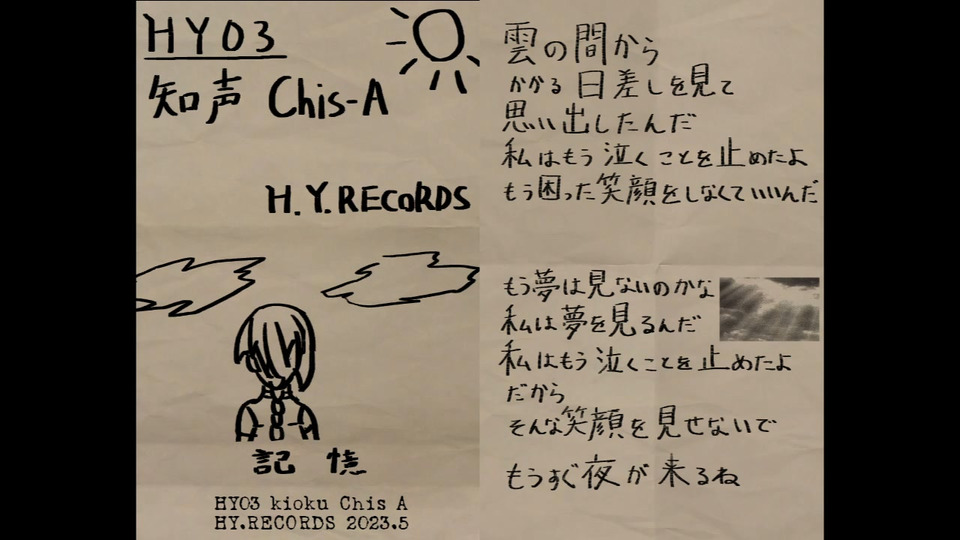 HY03
知声 Chis-A
H.Y.RECORDS
記憶
HY03 kioku Chis A
HY.RECORDS 2023.5
雲の間から
かがる日差しを見て
思い出したんだ
私はもう泣くことを止めたよ
もう困った笑顔をしなくていいんだ
もう夢は見ないのかな
私は夢を見るんだ
私はもう泣くことを止めたよ
だから
そんな笑顔を見せないで
もうすぐ夜が来るね